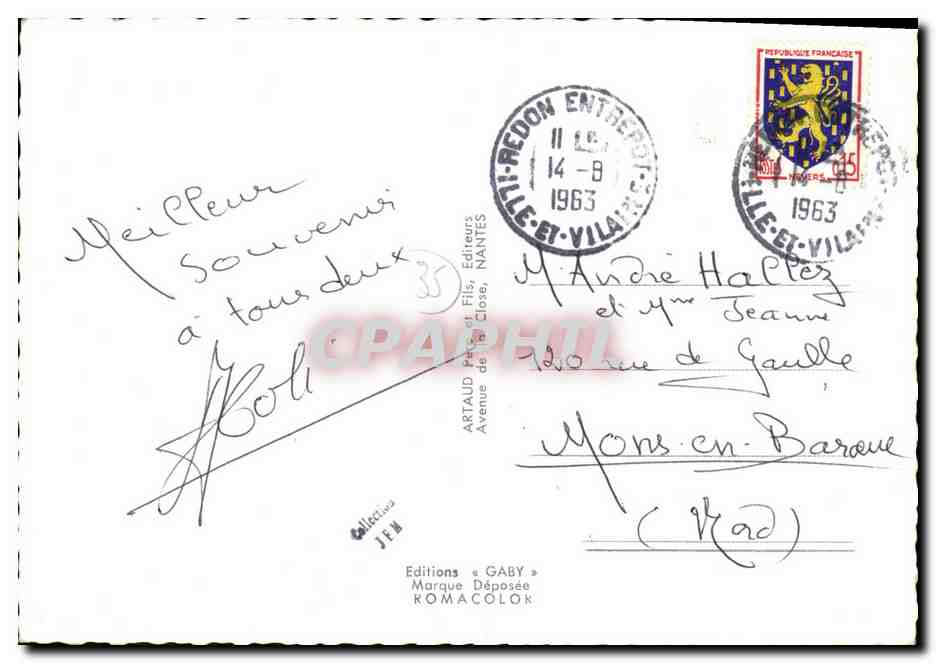 Meilleur
Souvenir
à tous deux
35
Collection
JEM
Editions « GABY »
Marque Déposée
ROMACOLOR
ARTAUD Père et Fils, Editeurs
Avenue de la Close, NANTES
CPAPHIL
REDON ENTREPOT
11
14 -8
1963
ILLE-ET-VILAINE
REPUBLIQUE FRANÇAISE
POSTES
0,15
NEVERS
14 -8
1963
ILLE-ET-VILAINE
M. André Hallez
et Mme Jeanne
120 rue de Gaulle
Mons-en-Baroeul
(Nord)